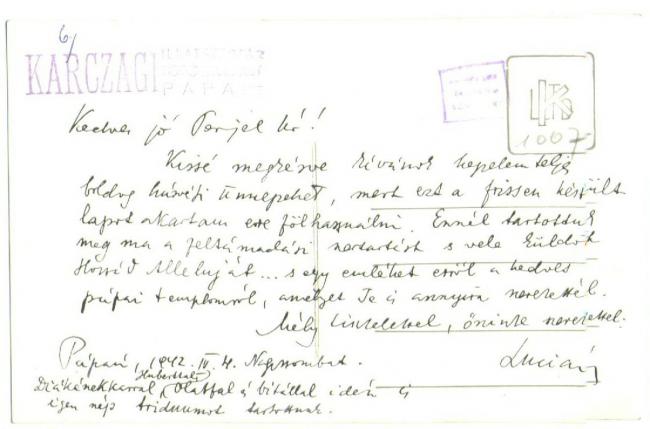 6/
KARCZAGI
PÁPA
1007
Kedves jó Perjel úr!
Kissé megkésve kívánok kegyelemteljes
boldog húsvéti ünnepeket, mert ezt a frissen készült
lapot akartam erre fölhasználni. Ennél tartottuk
meg ma a feltámadási szertartást s vele küldök
Hozzád Alleluját... s egy emléket erről a kedves
pápai templomról, amelyet Te is annyira szerettél.
Mély tisztelettel, őszinte szeretettel.
Pápán, 1942. IV. 4. Nagyszombat. Lucián
Diákénekkarral, Olaffal és
igen szép triduumot tartottunk.